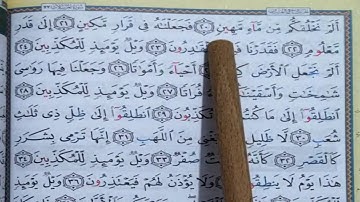 أَلَمْ نَخْلُقكُّم مِّن مَّآءٍ مَّهِينٍ ٢٠ فَجَعَلْنَٰهُ فِى قَرَارٍ مَّكِينٍ ٢١ إِلَىٰ قَدَرٍ
مَّعْلُومٍ ٢٢ فَقَدَرْنَا ٱلْقَٰدِرُونَ ٢٣ وَيْلٌ يَوْمَئِذٍ لِّلْمُكَذِّبِينَ ٢٤
أَلَمْ نَجْعَلِ ٱلْأَرْضَ أَحْيَآءً وَأَمْوَٰتًا ٢٦ وَجَعَلْنَا فِيهَا رَوَٰسِىَ
شَٰمِخَٰتٍ وَأَسْقَيْنَٰكُم فُرَاتًا ٢٧ وَيْلٌ يَوْمَئِذٍ لِّلْمُكَذِّبِينَ ٢٨
ٱنطَلِقُوٓا۟ إِلَىٰ مَا كُنتُم تُكَذِّبُونَ ٢٩ ٱنطَلِقُوٓا۟ إِلَىٰ ظِلٍّ ذِى ثَلَٰثِ
شُعَبٍ ٣٠ لَّا ظَلِيلٍ يُغْنِى مِنَ ٱللَّهَبِ ٣١ إِنَّهَا تَرْمِى بِشَرَرٍ
كَٱلْقَصْرِ ٣٢ كَأَنَّهُۥ صُفْرٌ ٣٣ وَيْلٌ يَوْمَئِذٍ لِّلْمُكَذِّبِينَ ٣٤
هَٰذَا يَوْمُ لَا يَنطِقُونَ وَلَا يُؤْذَنُ لَهُمْ فَيَعْتَذِرُونَ ٣٦ وَيْلٌ يَوْمَئِذٍ